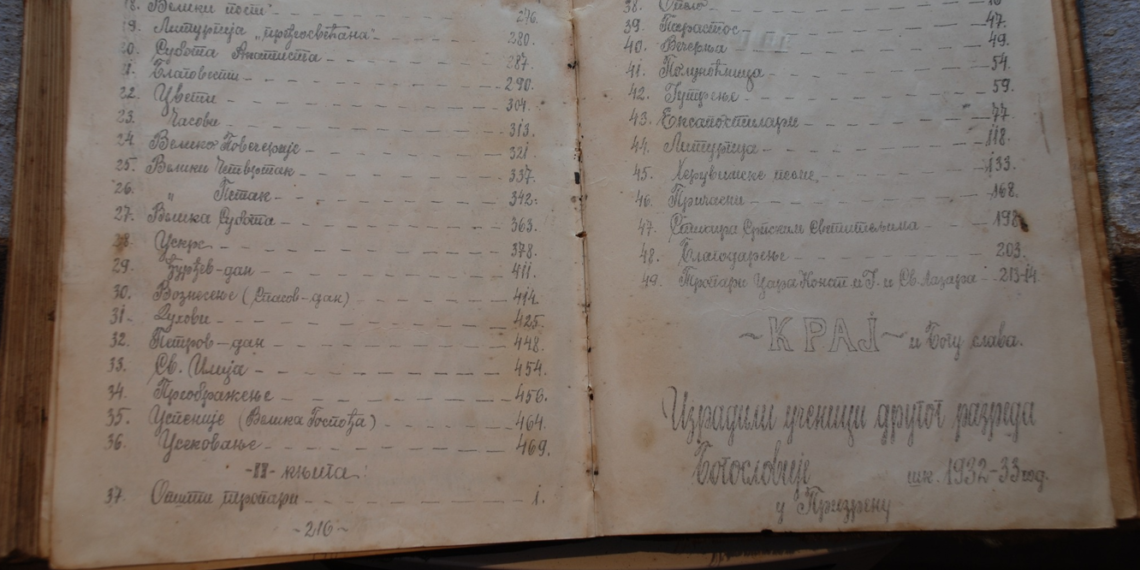 18. Велики пост - 276.
19. Литургија „пређеосвећена" 280.
20. Субота Акатиста - 287.
21. Благовести - 290.
22. Цвети - 304.
23. Часови - 313.
24. Велико Повечерије - 321.
25. Велики Четвртак - 337.
26. „ Петак - 342.
27. Велика Субота - 363.
28. Ускрс - 378.
29. Ђурђев-дан - 411.
30. Вознесење (Спасов-дан) - 414.
31. Духови - 425.
32. Петров-дан - 448.
33. Св. Илија - 454.
34. Преображење - 456.
35. Успеније (Велика Госпођа) - 464.
36. Усековање - 469.
-II- књига.
37. Општи тропари - 1.
-216-
38. Опело - 16
39. Парастос - 47.
40. Вечерња - 49.
41. Полуноћница - 54.
42. Јутрење - 59.
43. Ексапостилари - 77
44. Литургија - 118.
45. Херувимске песме, - 133.
46. Причасни - 168.
47. Стихира Српским Светитељима - 198.
48. Благодарење - 203.
49. Тропари Цара Конст. и Ј. и Св. Лазара - 213-14.
~КРАЈ~ и Богу слава.
Израдили ученици другог разреда
Богословије шк. 1932-33 год.
у Призрену